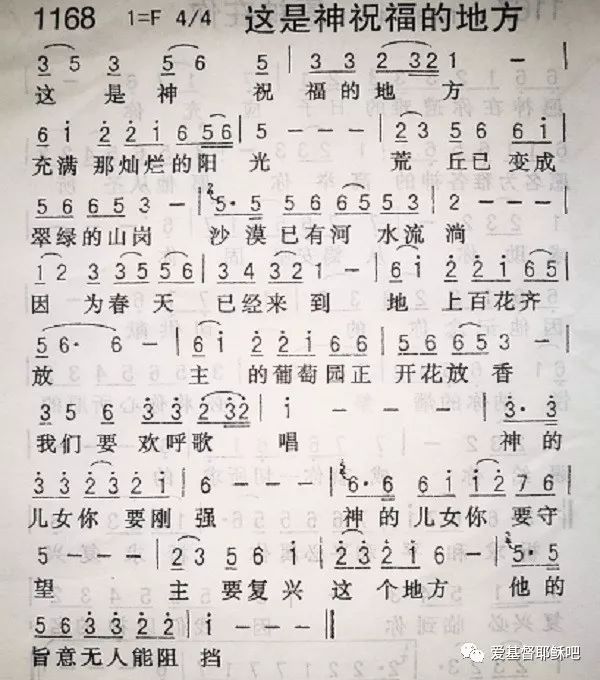 1168 1=F 4/4 这是神祝福的地方
3 5 3 5 6 5 | 3 3 2 2 3 2 1 - |
这是神祝福的地方
6 i 2 2 i 6 5 6 | 5 - - - | 2 3 5 6 6 i |
充满那灿烂的阳光荒丘已变成
5 6 6 5 3 - | 5· 5 5 6 6 5 5 3 | 2 - - - |
翠绿的山岗沙漠已有河水流淌
1 2 3 3 5 5 6 | 3 4 3 2 1 - | 6 i 2 2 i 6 5 |
因为春天已经来到地上百花齐
5 6· 6 - | 6 i 2 2 i 6 6 | 5 6 6 5 3 - |
放主的葡萄园正开花放香
3 5 6 3 2 3 2 | i - - - | 3· 3
我们要欢呼歌唱神的
3 3 2 3 2 1 | 6 - - - | 6· 6 6 i i 2 7 6 |
儿女你要刚强神的儿女你要守
5 - - - | 2 3 5 6 i | 2 3 2 1 6 - | 5· 5
望主要复兴这个地方他的
5 6 3 3 2 2 | i - - - ‖
旨意无人能阻挡
爱基督耶稣吧